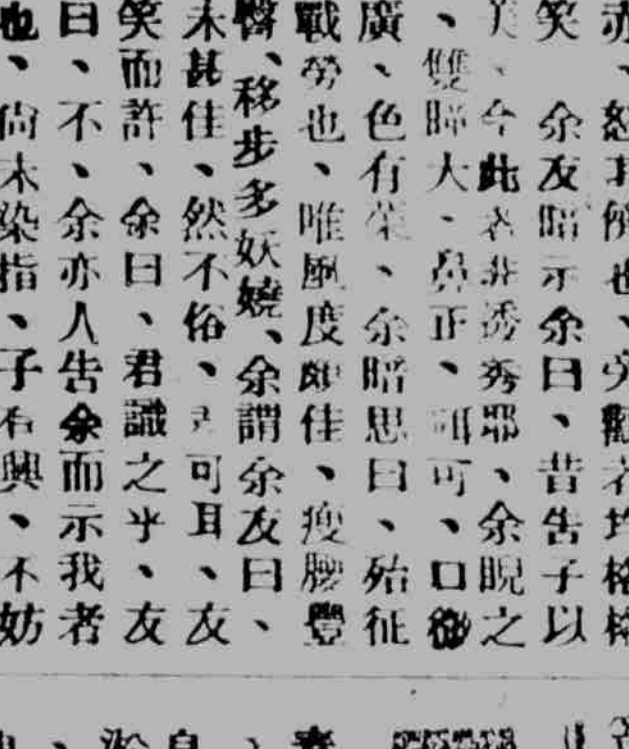 亦、怒耳例也、旁觀者均格格
笑 余友暗示余曰、昔告子以
美、今此者非透秀耶、余睨之
、雙睜大、鼻正、可、口
廣、色有、余暗思曰、殆征
戰勞也、唯風度即佳、瘦腰豐
臀、移步多妖嬈、余謂余友曰、
未甚佳、然不俗、可耳、友
笑而許、余曰、君識之乎、友
曰、不、余亦人告余而示我者
也、尙未染指、子有興、不妨